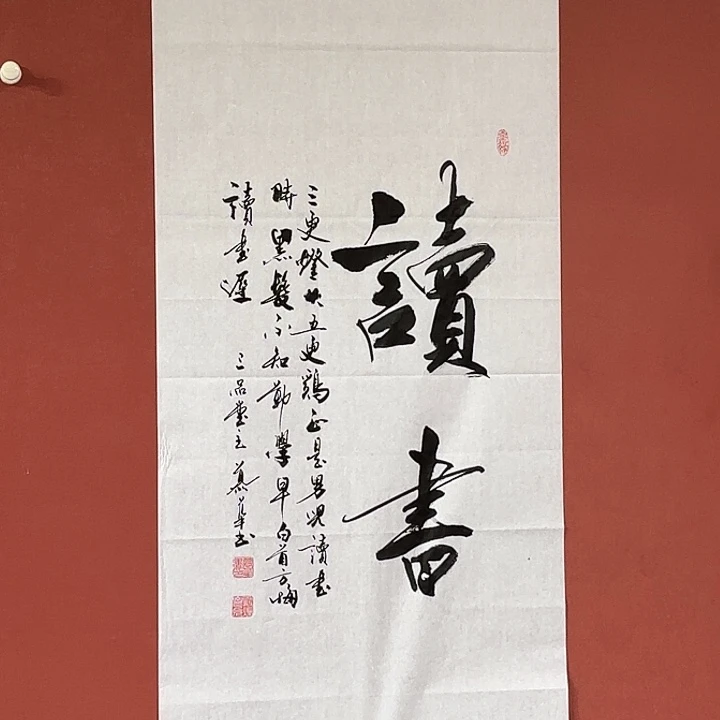 讀書
三更燈火五更鷄正是男兒讀書
時黑髮不知勤學早白首方悔
讀書遲
三品堂主慕華书